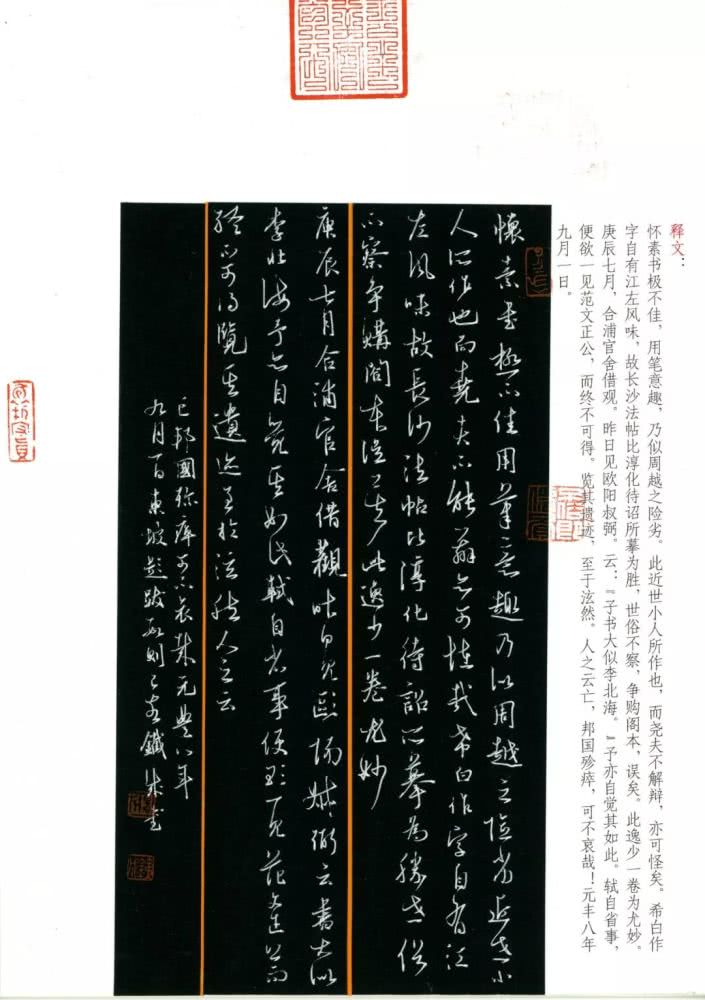 释文：
怀素书极不佳，用笔意趣，乃似周越之险劣。此近世小人所作也，而尧夫不解辩，亦可怪矣。希白作
字自有江左风味，故长沙法帖比淳化待诏所摹为胜，世俗不察，争购阁本，误矣。此逸少一卷为尤妙。
庚辰七月，合浦官舍借观。昨日见欧阳叔弼。云：『子书大似李北海。』予亦自觉其如此。轼自省事，
便欲一见范文正公，而终不可得。览其遗迹，至于泫然。人之云亡，邦国殄瘁，可不哀哉！元丰八年
九月一日。
懷素書極不佳用筆意趣乃似周越之險劣近世小
人所作也而堯夫不能辯亦可怪哉希白作字自有江
左風味故長沙法帖比淳化待詔所摹為勝世俗
不察爭購閣本誤矣此逸少一卷尤妙
庚辰七月合浦官舍借觀昨日見歐陽叔弼云書大似
李北海予亦自覺其如此軾自省事便欲一見范文正公而
終不可得覽其遺迹至於泫然人之云
亡邦國殄瘁可不哀哉元豐八年
九月一日東坡題跋數則鐵成書